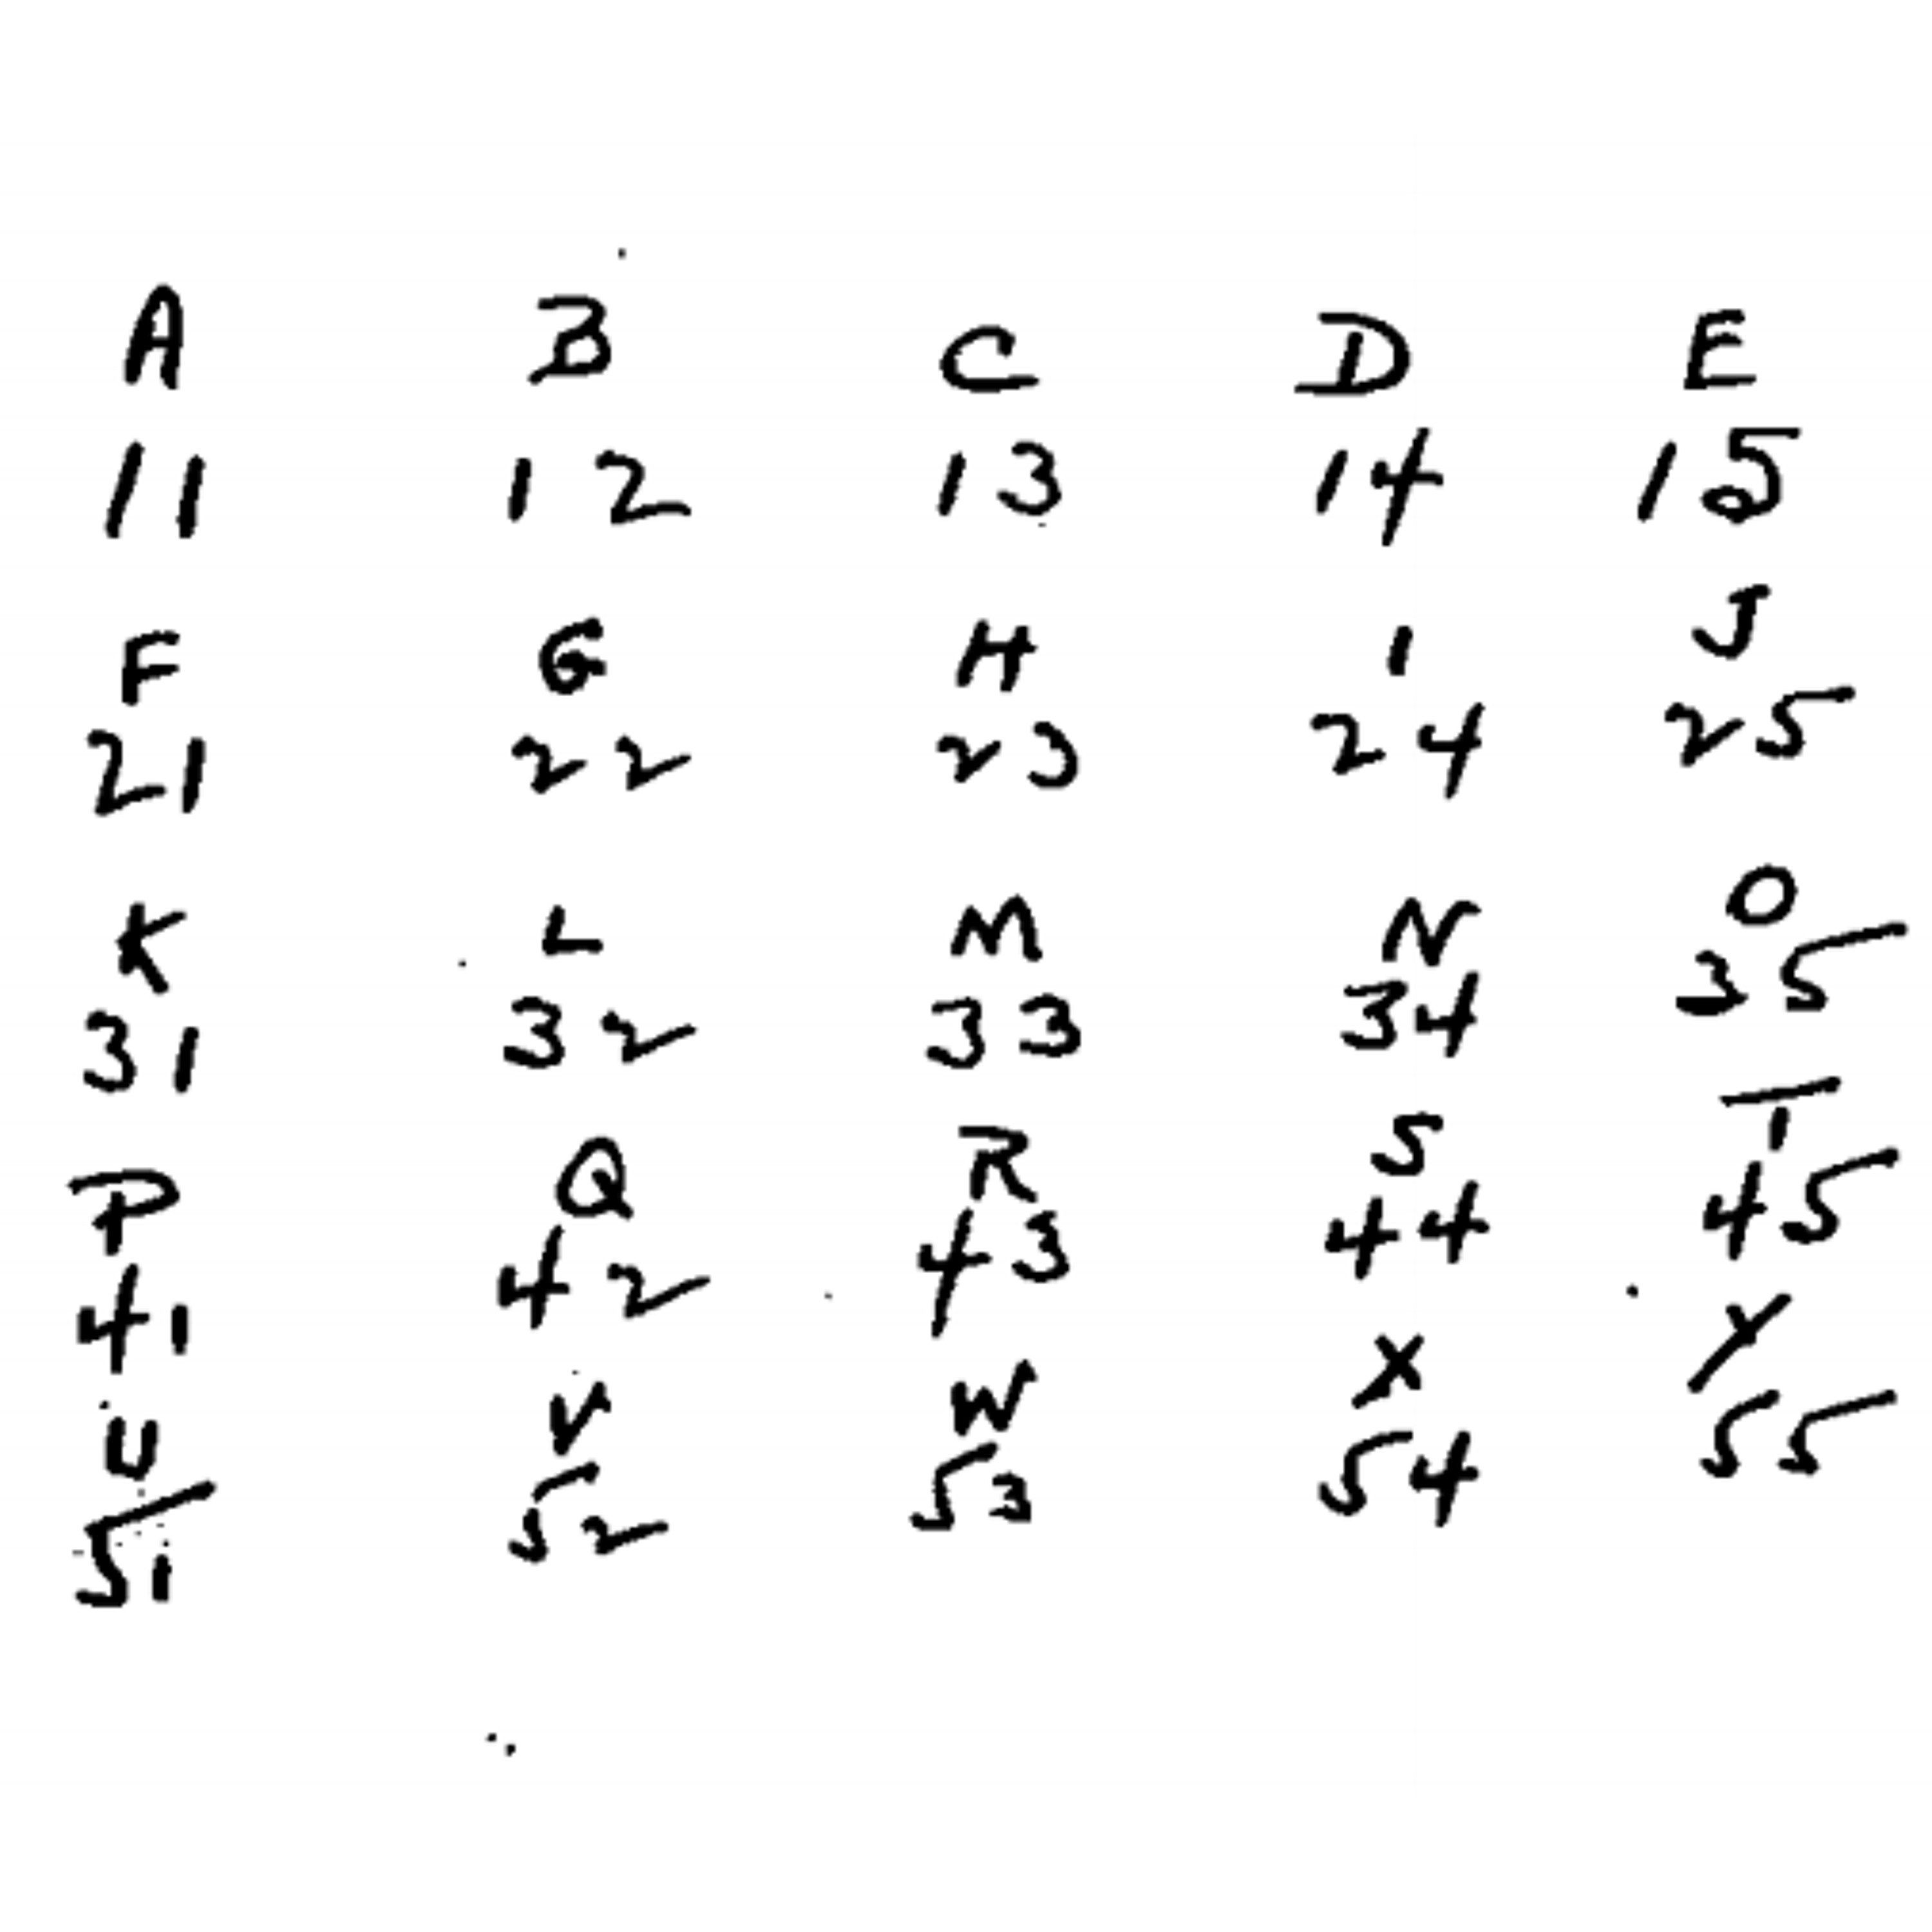 A B C D E
11 12 13 14 15
F G H I J
21 22 23 24 25
K L M N O
31 32 33 34 35
P Q R S T
41 42 43 44 45
U V W X Y
51 52 53 54 55